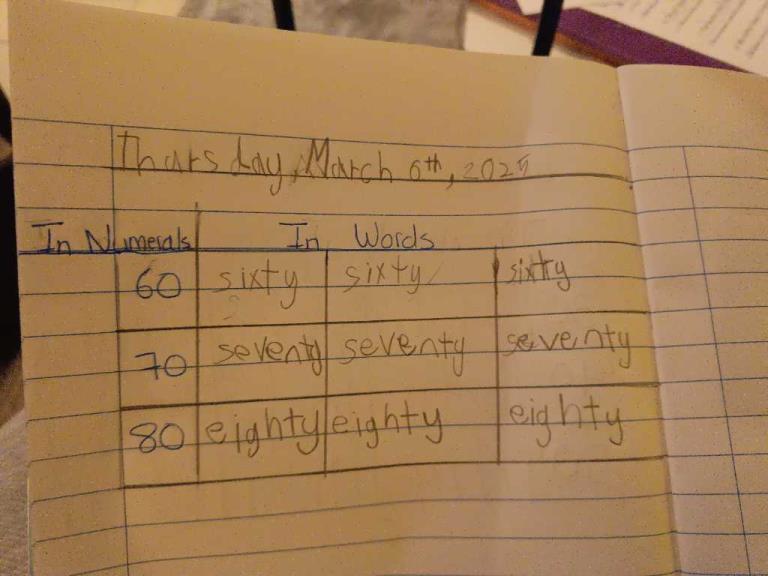 Thursday, March 6th, 2025
In Numerals In Words
60 sixty sixty sixty
70 seventy seventy seventy
80 eighty eighty eighty